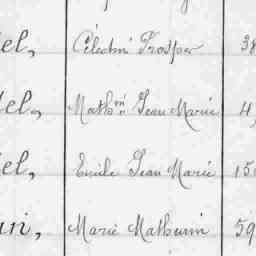 el, Célestin Prosper 38
el, Math.in Jean Marie 4
el, Emile Jean Marie 15
in, Marie Mathurin 59